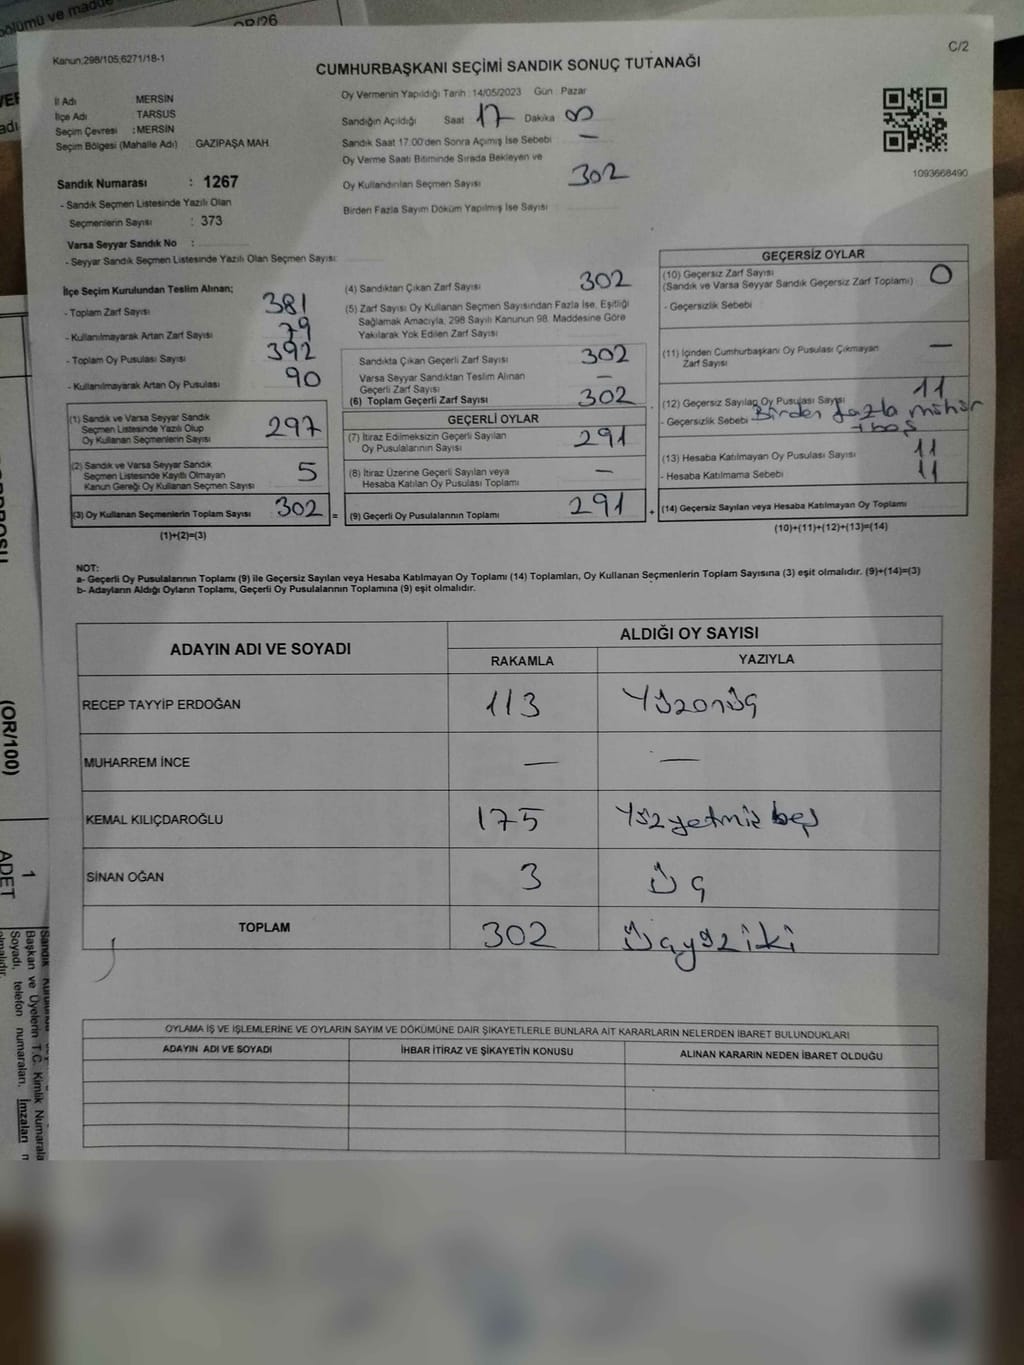 bölümü ve madde
OR/26
Kanun;298/105;6271/18-1
C/2
CUMHURBAŞKANI SEÇİMİ SANDIK SONUÇ TUTANAĞI
İl Adı : MERSİN
İlçe Adı : TARSUS
Seçim Çevresi : MERSİN
Seçim Bölgesi (Mahalle Adı) : GAZIPAŞA MAH.
Oy Vermenin Yapıldığı Tarih : 14/05/2023 Gün : Pazar
Sandığın Açıldığı Saat 17 Dakika 00
Sandık Saat 17:00'den Sonra Açılmış İse Sebebi —
Oy Verme Saati Bitiminde Sırada Bekleyen ve
Oy Kullandırılan Seçmen Sayısı 302
Birden Fazla Sayım Döküm Yapılmış İse Sayısı
1093668490
Sandık Numarası : 1267
- Sandık Seçmen Listesinde Yazılı Olan
Seçmenlerin Sayısı : 373
Varsa Seyyar Sandık No :
- Seyyar Sandık Seçmen Listesinde Yazılı Olan Seçmen Sayısı:
İlçe Seçim Kurulundan Teslim Alınan;
- Toplam Zarf Sayısı 381
- Kullanılmayarak Artan Zarf Sayısı 79
- Toplam Oy Pusulası Sayısı 392
- Kullanılmayarak Artan Oy Pusulası 90
(1) Sandık ve Varsa Seyyar Sandık
Seçmen Listesinde Yazılı Olup
Oy Kullanan Seçmenlerin Sayısı 297
(2) Sandık ve Varsa Seyyar Sandık
Seçmen Listesinde Kayıtlı Olmayan
Kanun Gereği Oy Kullanan Seçmen Sayısı 5
(3) Oy Kullanan Seçmenlerin Toplam Sayısı 302 =
(1)+(2)=(3)
(4) Sandıktan Çıkan Zarf Sayısı 302
(5) Zarf Sayısı Oy Kullanan Seçmen Sayısından Fazla İse, Eşitliği
Sağlamak Amacıyla, 298 Sayılı Kanunun 98. Maddesine Göre
Yakılarak Yok Edilen Zarf Sayısı
Sandıkta Çıkan Geçerli Zarf Sayısı 302
Varsa Seyyar Sandıktan Teslim Alınan
Geçerli Zarf Sayısı —
(6) Toplam Geçerli Zarf Sayısı 302
GEÇERLİ OYLAR
(7) İtiraz Edilmeksizin Geçerli Sayılan
Oy Pusulasının Sayısı 291
(8) İtiraz Üzerine Geçerli Sayılan veya
Hesaba Katılan Oy Pusulası Toplamı —
(9) Geçerli Oy Pusulalarının Toplamı 291 +
GEÇERSİZ OYLAR
(10) Geçersiz Zarf Sayısı
(Sandık ve Varsa Seyyar Sandık Geçersiz Zarf Toplamı) 0
- Geçersizlik Sebebi :
(11) İçinden Cumhurbaşkanı Oy Pusulası Çıkmayan
Zarf Sayısı —
(12) Geçersiz Sayılan Oy Pusulası Sayısı 11
- Geçersizlik Sebebi Birden fazla mühür
(13) Hesaba Katılmayan Oy Pusulası Sayısı 11
- Hesaba Katılmama Sebebi 11
(14) Geçersiz Sayılan veya Hesaba Katılmayan Oy Toplamı
(10)+(11)+(12)+(13)=(14)
NOT:
a- Geçerli Oy Pusulalarının Toplamı (9) ile Geçersiz Sayılan veya Hesaba Katılmayan Oy Toplamı (14) Toplamları, Oy Kullanan Seçmenlerin Toplam Sayısına (3) eşit olmalıdır. (9)+(14)=(3)
b- Adayların Aldığı Oyların Toplamı, Geçerli Oy Pusulalarının Toplamına (9) eşit olmalıdır.
ADAYIN ADI VE SOYADI
ALDIĞI OY SAYISI
RAKAMLA YAZIYLA
RECEP TAYYİP ERDOĞAN 113 Yüzonüç
MUHARREM İNCE — —
KEMAL KILIÇDAROĞLU 175 Yüzyetmişbeş
SİNAN OĞAN 3 Üç
TOPLAM 302 Üçyüziki
OYLAMA İŞ VE İŞLEMLERİNE VE OYLARIN SAYIM VE DÖKÜMÜNE DAİR ŞİKAYETLERLE BUNLARA AİT KARARLARIN NELERDEN İBARET BULUNDUKLARI
ADAYIN ADI VE SOYADI İHBAR İTİRAZ VE ŞİKAYETİN KONUSU ALINAN KARARIN NEDEN İBARET OLDUĞU
(OR/100)
1
ADET
Başkan ve Üyelerin T.C. Kimlik Numarala
Soyadı, telefon numaraları, İmzaları